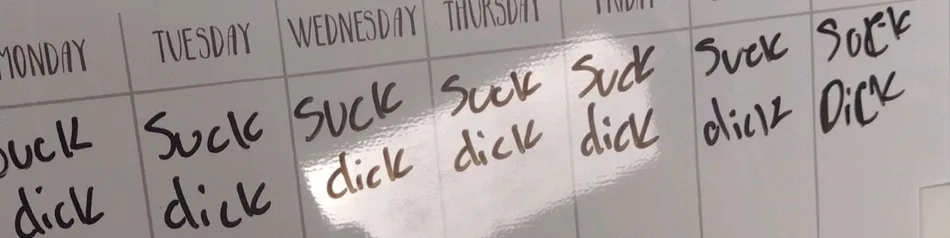 MONDAY TUESDAY WEDNESDAY THURSDAY FRIDAY
suck Suck Suck Suck Suck Suck Suck
dick dick dick dick dick dick Dick